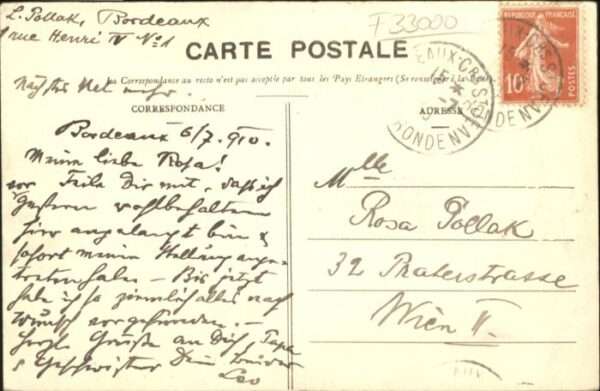 L. Pollak, Bordeaux
1 rue Henri IV No 1
F 33000
CARTE POSTALE
La Correspondance au recto n'est pas acceptée par tous les Pays Etrangers (Se renseigner à la
Nächstes Mal mehr.
CORRESPONDANCE
ADRESSE
Bordeaux 6/7. 910.
Meine liebe Rosa!
Teile Dir mit, daß ich
gestern wohlbehalten
hier angelangt bin &
sofort meine Stellung ange-
treten habe – Bis jetzt
habe ich so ziemlich alles nach
Wunsch vorgefunden. –
Große Grüsse an Dich, Papa
& Geschwister Dein
Leo
Mlle
Rosa Pollak
32 Praterstrasse
Wien II.
REPUBLIQUE FRANÇAISE
10c
POSTES